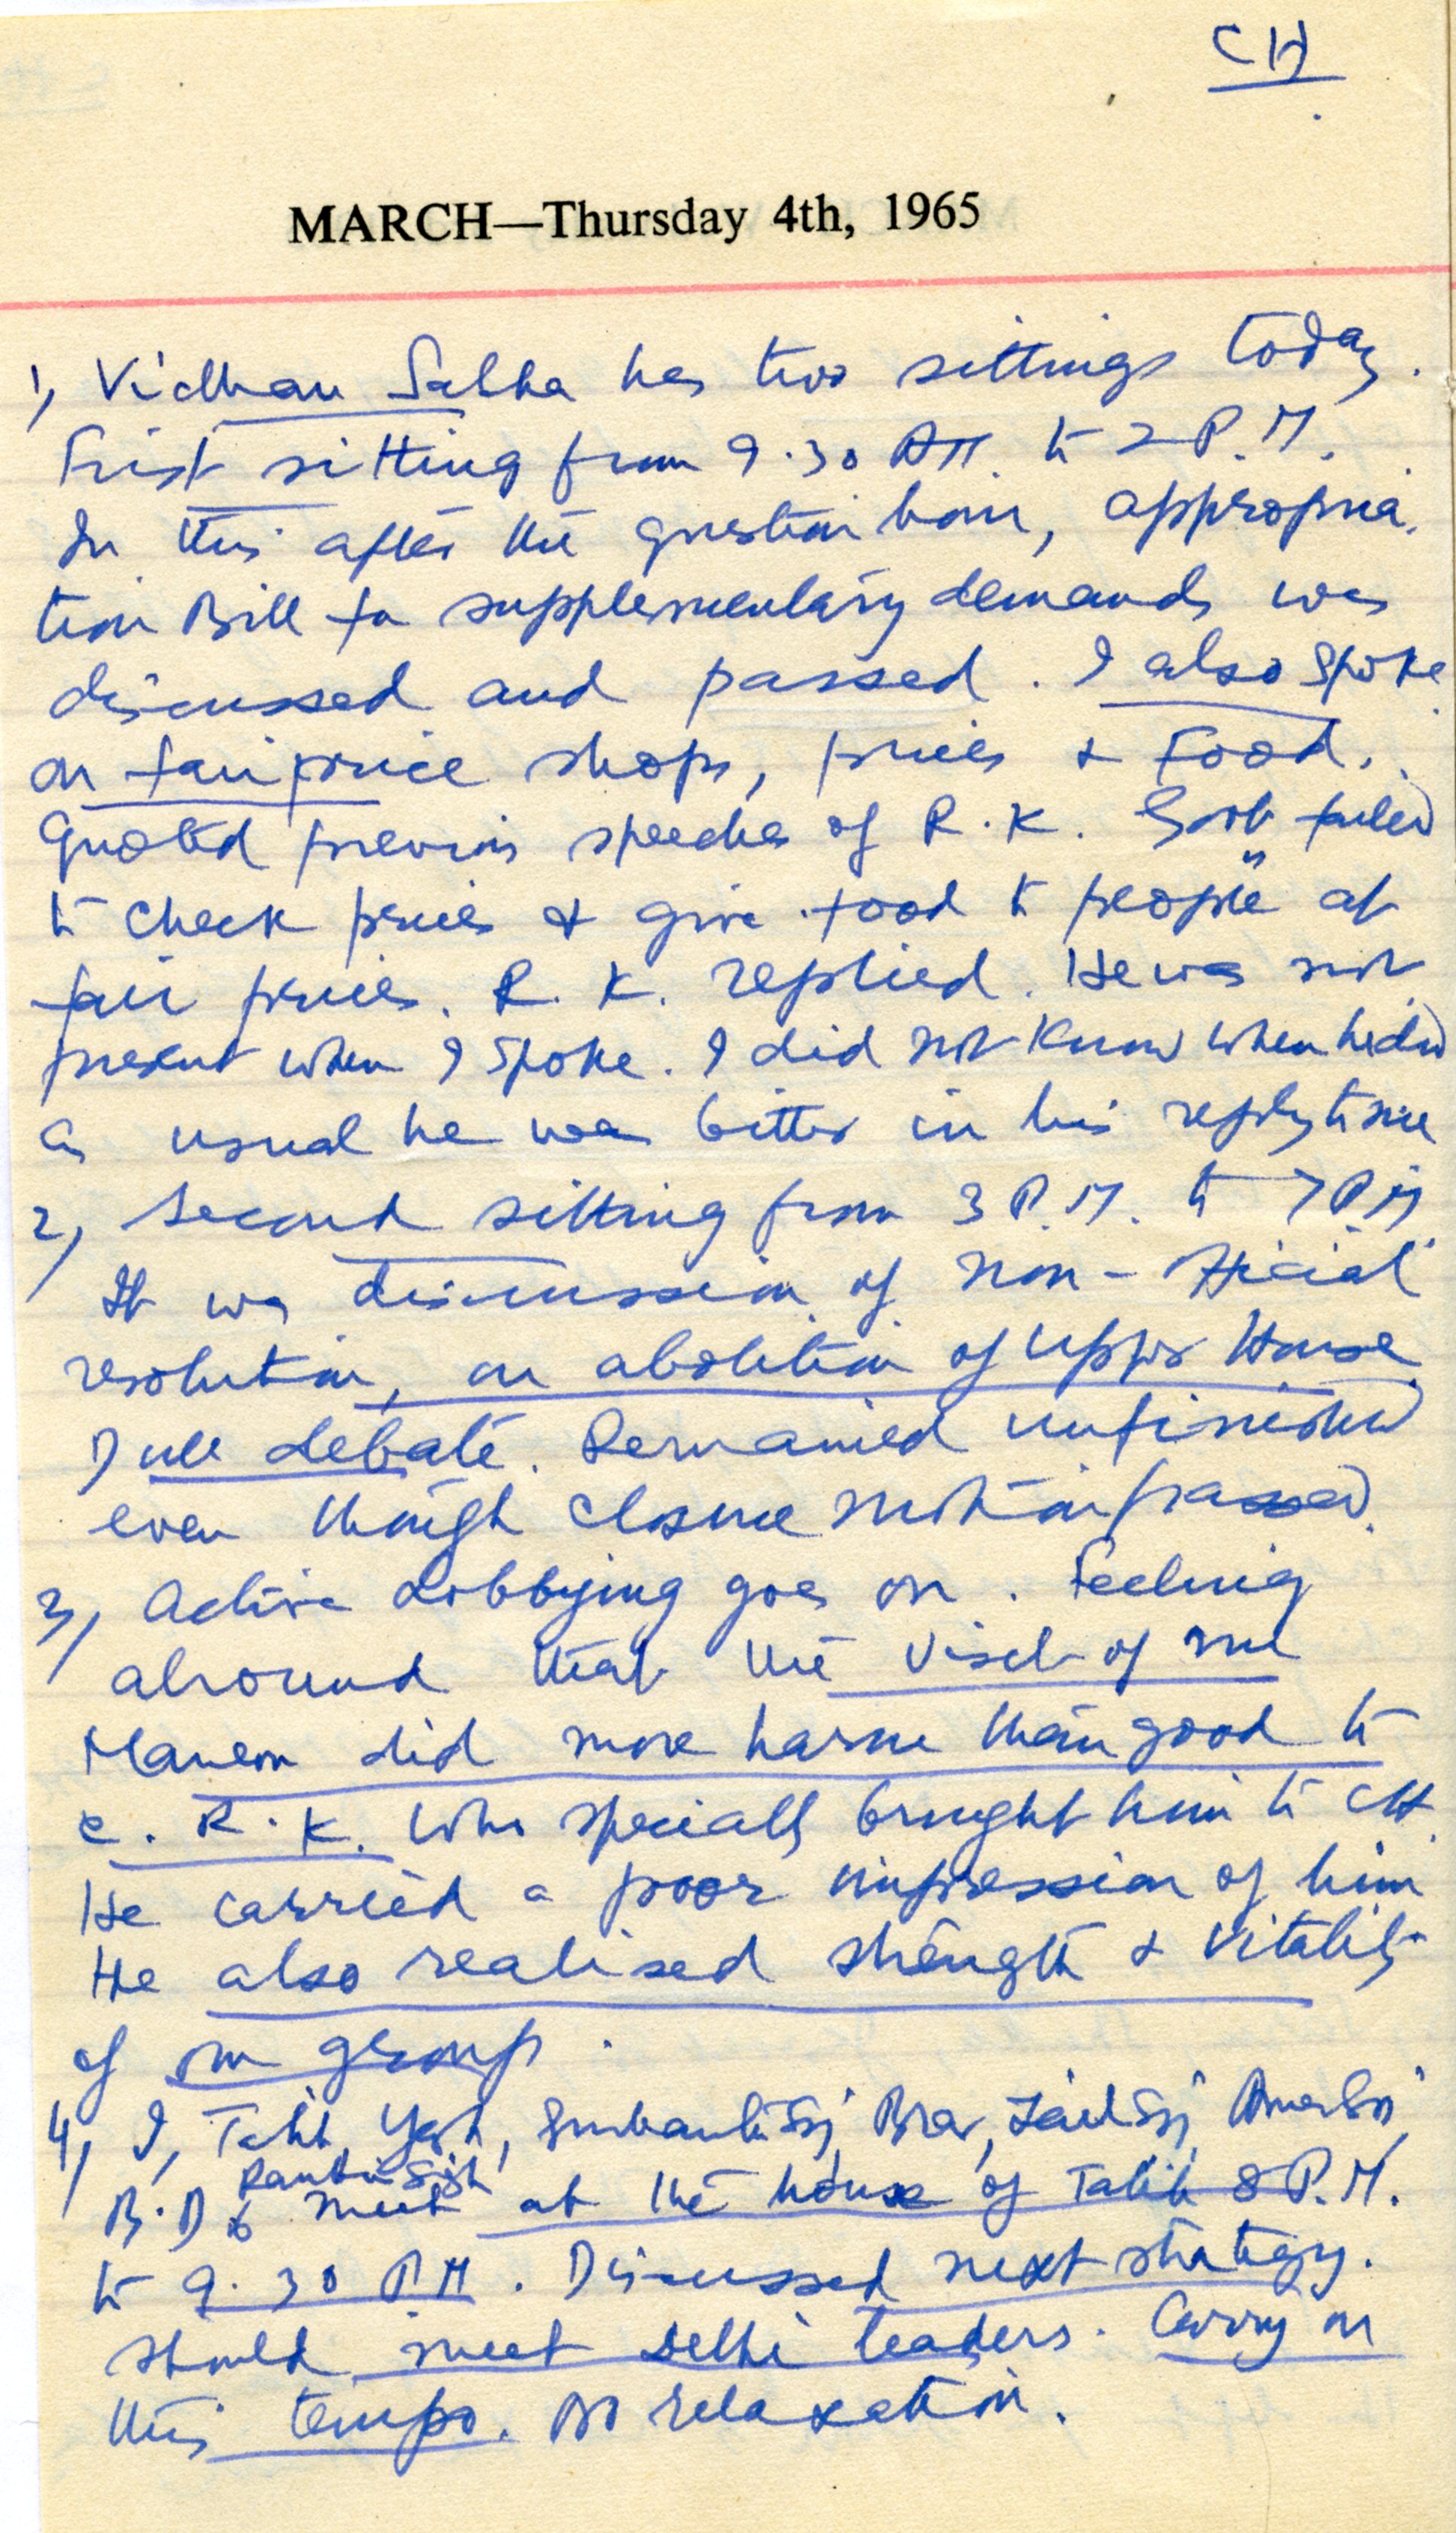 CH
MARCH—Thursday 4th, 1965
1, Vidhan Sabha has two sittings today.
First sitting from 9.30 AM. to 2 P.M.
In this after the question hour, appropria-
tion Bill for supplementary demands was
discussed and passed. I also spoke
on fair price shops, prices & Food.
Quoted previous speeches of R.K. Govt failed
to check prices & give food to people at
fair prices. R.K. replied. He was not
present when I spoke. I did not know when he did
as usual he was bitter in his reply to me
2, Second sitting from 3 P.M. to 7 P.M
It was discussion of non-official
resolution, on abolition of Upper House
Dull debate. Remained unfinished
even though closure motion passed.
3, Active Lobbying goes on. Feeling
alround that the visit of
did more harm than good to
C.R.K. who specially brought him to CH.
He carried a poor impression of him
He also realised strength & vitality
of our group.
4, I, Talib, Yash, Brar, Zail Sgj,
B.D & meet at the house of Talib 8 P.M.
to 9.30 PM. Discussed next strategy.
should meet Delhi leaders. Carry on
this tempo. No relaxation.